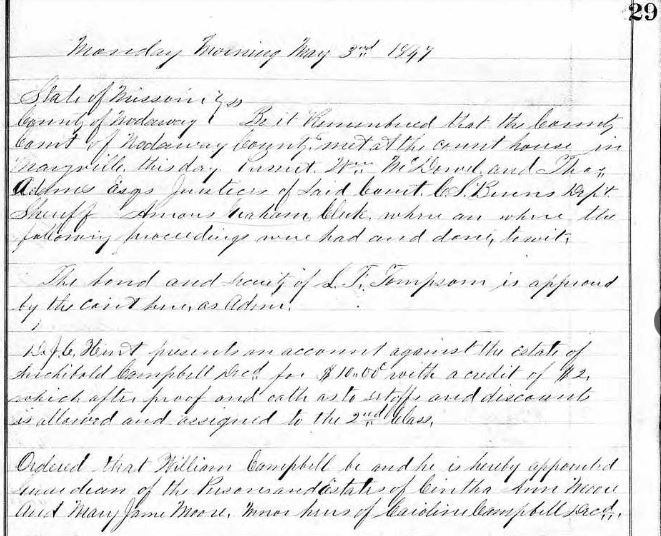 29
Monday Morning May 3rd 1847
State of Missouri } ss
County of Nodaway } Be it Remembered that the County
Court of Nodaway County, met at the court house in
Maryville, this day Present. Wm McDowel, and Thos
Adams Esqs Justices of said Court. C. S. Burns Dept.
Sheriff Amous Graham, Clerk. where an where the
following proceedings were had and done, towit;
The bond and security of L. F. Tompson is approved
by the court here, as Admr.
Dr J. C. Hunt presents an account against the estate of
Archibald Campbell Decd for $10.00 with a credit of $2,
which after proof and oath as to setoffs and discounts
is allowed and assigned to the 2nd Class,
Ordered that William Campbell be and he is hereby appointed
Guardian of the Persons and Estates of Cintha Ann Moore
and Mary Jane Moore, Minor heirs of Caroline Campbell Decd,